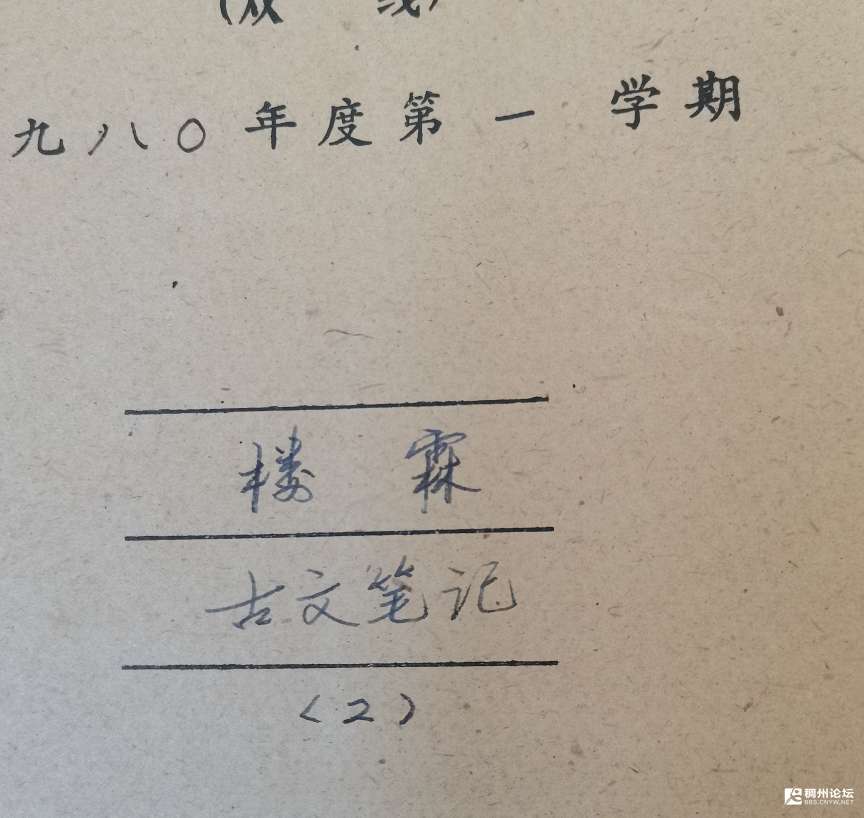 (双 线)
九八〇年度第一学期
楼 霖
古文笔记
(2)
稠州论坛
BBS.CNYW.NET